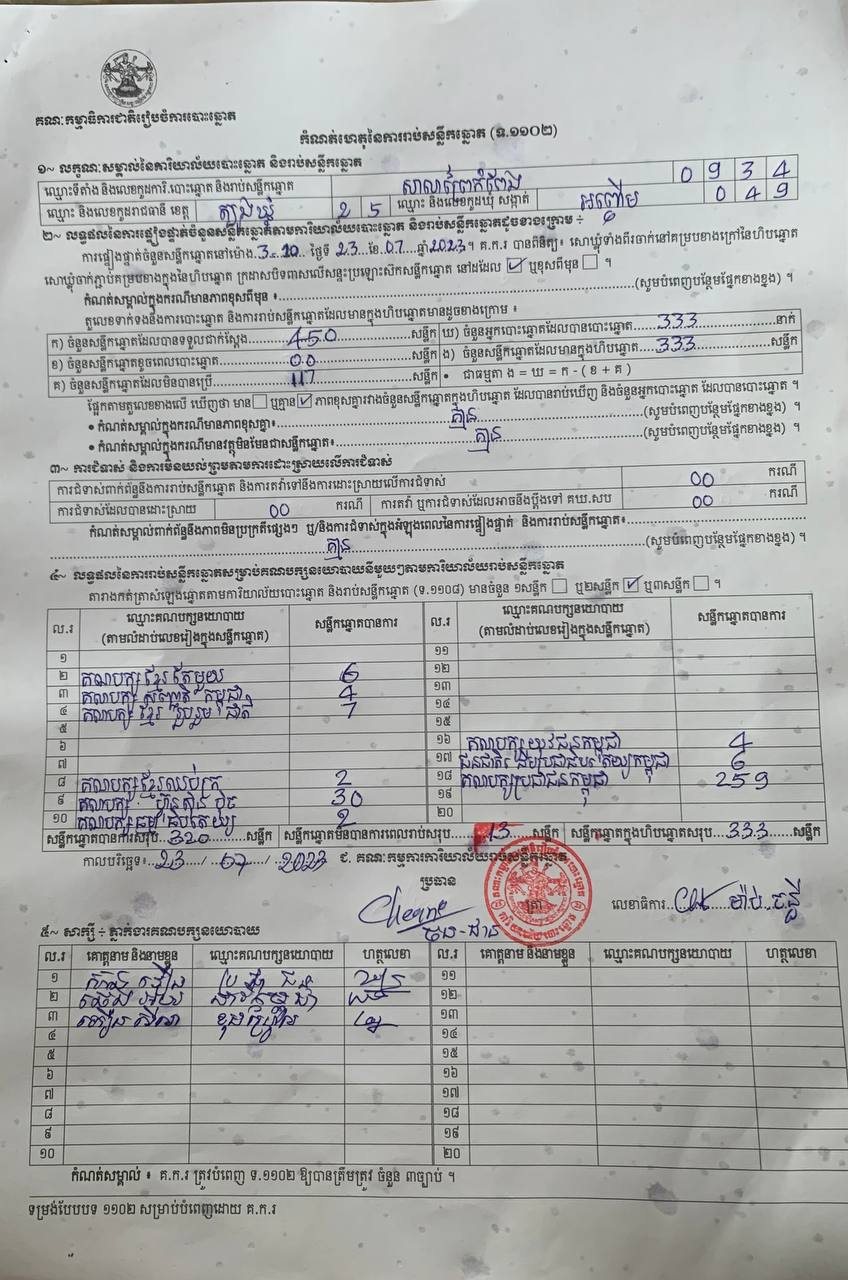 គណៈកម្មាធិការជាតិរៀបចំការបោះឆ្នោត
កំណត់ហេតុនៃការរាប់សន្លឹកឆ្នោត (ទ.១១០២)
១~ លក្ខណៈសម្គាល់នៃការិយាល័យបោះឆ្នោត និងរាប់សន្លឹកឆ្នោត
ឈ្មោះទីតាំង និងលេខកូដការិ.បោះឆ្នោត និងរាប់សន្លឹកឆ្នោត 0 9 3 4
ឈ្មោះ និងលេខកូដរាជធានី ខេត្ត ត្បូងឃ្មុំ 2 5 ឈ្មោះ និងលេខកូដឃុំ សង្កាត់ 0 4 9
២~ លទ្ធផលនៃការផ្ទៀងផ្ទាត់ចំនួនសន្លឹកឆ្នោតតាមការិយាល័យបោះឆ្នោត និងរាប់សន្លឹកឆ្នោតដូចខាងក្រោម ÷
ការផ្ទៀងផ្ទាត់ចំនួនសន្លឹកឆ្នោតនៅម៉ោង 3..10 ថ្ងៃទី 23 ខែ 07 ឆ្នាំ 2023 ។ គ.ក.រ បានពិនិត្យ៖ សោឃ្មុំទាំងពីរចាក់នៅគម្របខាងក្រៅនៃហិបឆ្នោត
សោឃ្មុំចាក់ភ្ជាប់គម្របខាងក្នុងនៃហិបឆ្នោត ក្រដាសបិទពាសលើសន្ទះប្រឡោះសិកសន្លឹកឆ្នោត នៅដដែល ☑ ឬខុសពីមុន ☐ ។
កំណត់សម្គាល់ក្នុងករណីមានភាពខុសពីមុន ៖ (សូមបំពេញបន្ថែមផ្នែកខាងខ្នង) ។
តួលេខទាក់ទងនឹងការបោះឆ្នោត និងការរាប់សន្លឹកឆ្នោតដែលមានក្នុងហិបឆ្នោតមានដូចខាងក្រោម ៖
ក) ចំនួនសន្លឹកឆ្នោតដែលបានទទួលជាក់ស្តែង 450 សន្លឹក ឃ) ចំនួនអ្នកបោះឆ្នោតដែលបានបោះឆ្នោត 333 នាក់
ខ) ចំនួនសន្លឹកឆ្នោតខូចពេលបោះឆ្នោត 00 សន្លឹក ង) ចំនួនសន្លឹកឆ្នោតដែលមានក្នុងហិបឆ្នោត 333 សន្លឹក
គ) ចំនួនសន្លឹកឆ្នោតដែលមិនបានប្រើ 117 សន្លឹក • ជាធម្មតា ង = ឃ = ក - ( ខ + គ )
ផ្អែកតាមតួលេខខាងលើ ឃើញថា មាន ☐ ឬគ្មាន ☑ ភាពខុសគ្នារវាងចំនួនសន្លឹកឆ្នោតក្នុងហិបឆ្នោត ដែលបានរាប់ឃើញ និងចំនួនអ្នកបោះឆ្នោត ដែលបានបោះឆ្នោត ។
• កំណត់សម្គាល់ក្នុងករណីមានភាពខុសគ្នា៖ គ្មាន (សូមបំពេញបន្ថែមផ្នែកខាងខ្នង) ។
• កំណត់សម្គាល់ក្នុងករណីមានវត្ថុមិនមែនជាសន្លឹកឆ្នោត៖ គ្មាន (សូមបំពេញបន្ថែមផ្នែកខាងខ្នង) ។
៣~ ការជំទាស់ និងការមិនយល់ព្រមតាមការដោះស្រាយលើការជំទាស់
ការជំទាស់ពាក់ព័ន្ធនឹងការរាប់សន្លឹកឆ្នោត និងការតវ៉ាទៅនឹងការដោះស្រាយលើការជំទាស់ 00 ករណី
ការជំទាស់ដែលបានដោះស្រាយ 00 ករណី ការតវ៉ា ឬការជំទាស់ដែលអាចនឹងប្តឹងទៅ គឃ.សប 00 ករណី
កំណត់សម្គាល់ពាក់ព័ន្ធនឹងភាពមិនប្រក្រតីផ្សេងៗ ឬ/និងការជំទាស់ក្នុងអំឡុងពេលនៃការផ្ទៀងផ្ទាត់ និងការរាប់សន្លឹកឆ្នោត៖
គ្មាន (សូមបំពេញបន្ថែមផ្នែកខាងខ្នង) ។
៤~ លទ្ធផលនៃការរាប់សន្លឹកឆ្នោតសម្រាប់គណបក្សនយោបាយនីមួយៗតាមការិយាល័យរាប់សន្លឹកឆ្នោត
តារាងកត់ត្រាសំឡេងឆ្នោតតាមការិយាល័យបោះឆ្នោត និងរាប់សន្លឹកឆ្នោត (ទ.១១០៨) មានចំនួន ១សន្លឹក ☐ ឬ២សន្លឹក ☑ ឬ៣សន្លឹក ☐ ។
ល.រ ឈ្មោះគណបក្សនយោបាយ (តាមលំដាប់លេខរៀងក្នុងសន្លឹកឆ្នោត) សន្លឹកឆ្នោតបានការ ល.រ ឈ្មោះគណបក្សនយោបាយ (តាមលំដាប់លេខរៀងក្នុងសន្លឹកឆ្នោត) សន្លឹកឆ្នោតបានការ
១ ១១
២ គណបក្ស ខ្មែរ តែមួយ 6 ១២
៣ គណបក្ស សញ្ជាតិ កម្ពុជា 4 ១៣
៤ គណបក្ស ខ្មែរ រួបរួម ជាតិ 7 ១៤
៥ ១៥
៦ ១៦ គណបក្សយុវជនកម្ពុជា 4
៧ ១៧ 6
៨ គណបក្សខ្មែរឈប់ក្រ 2 ១៨ គណបក្សប្រជាជនកម្ពុជា 259
៩ គណបក្ស ហ៊្វុនស៊ិនប៉ិច 30 ១៩
១០ 2 ២០
សន្លឹកឆ្នោតបានការសរុប 320 សន្លឹក សន្លឹកឆ្នោតមិនបានការពេលរាប់សរុប 13 សន្លឹក សន្លឹកឆ្នោតក្នុងហិបឆ្នោតសរុប 333 សន្លឹក
កាលបរិច្ឆេទ៖ 23 / 07 / 2023 ជ. គណៈកម្មការការិយាល័យរាប់សន្លឹកឆ្នោត
ប្រធាន
ត្រា លេខាធិការ
៥~ សាក្សី ÷ ភ្នាក់ងារគណបក្សនយោបាយ
ល.រ គោត្តនាម និងនាមខ្លួន ឈ្មោះគណបក្សនយោបាយ ហត្ថលេខា ល.រ គោត្តនាម និងនាមខ្លួន ឈ្មោះគណបក្សនយោបាយ ហត្ថលេខា
១ ១១
២ ១២
៣ ១៣
៤ ១៤
៥ ១៥
៦ ១៦
៧ ១៧
៨ ១៨
៩ ១៩
១០ ២០
កំណត់សម្គាល់ ៖ គ.ក.រ ត្រូវបំពេញ ទ.១១០២ ឱ្យបានត្រឹមត្រូវ ចំនួន ៣ច្បាប់ ។
ទម្រង់បែបបទ ១១០២ សម្រាប់បំពេញដោយ គ.ក.រ